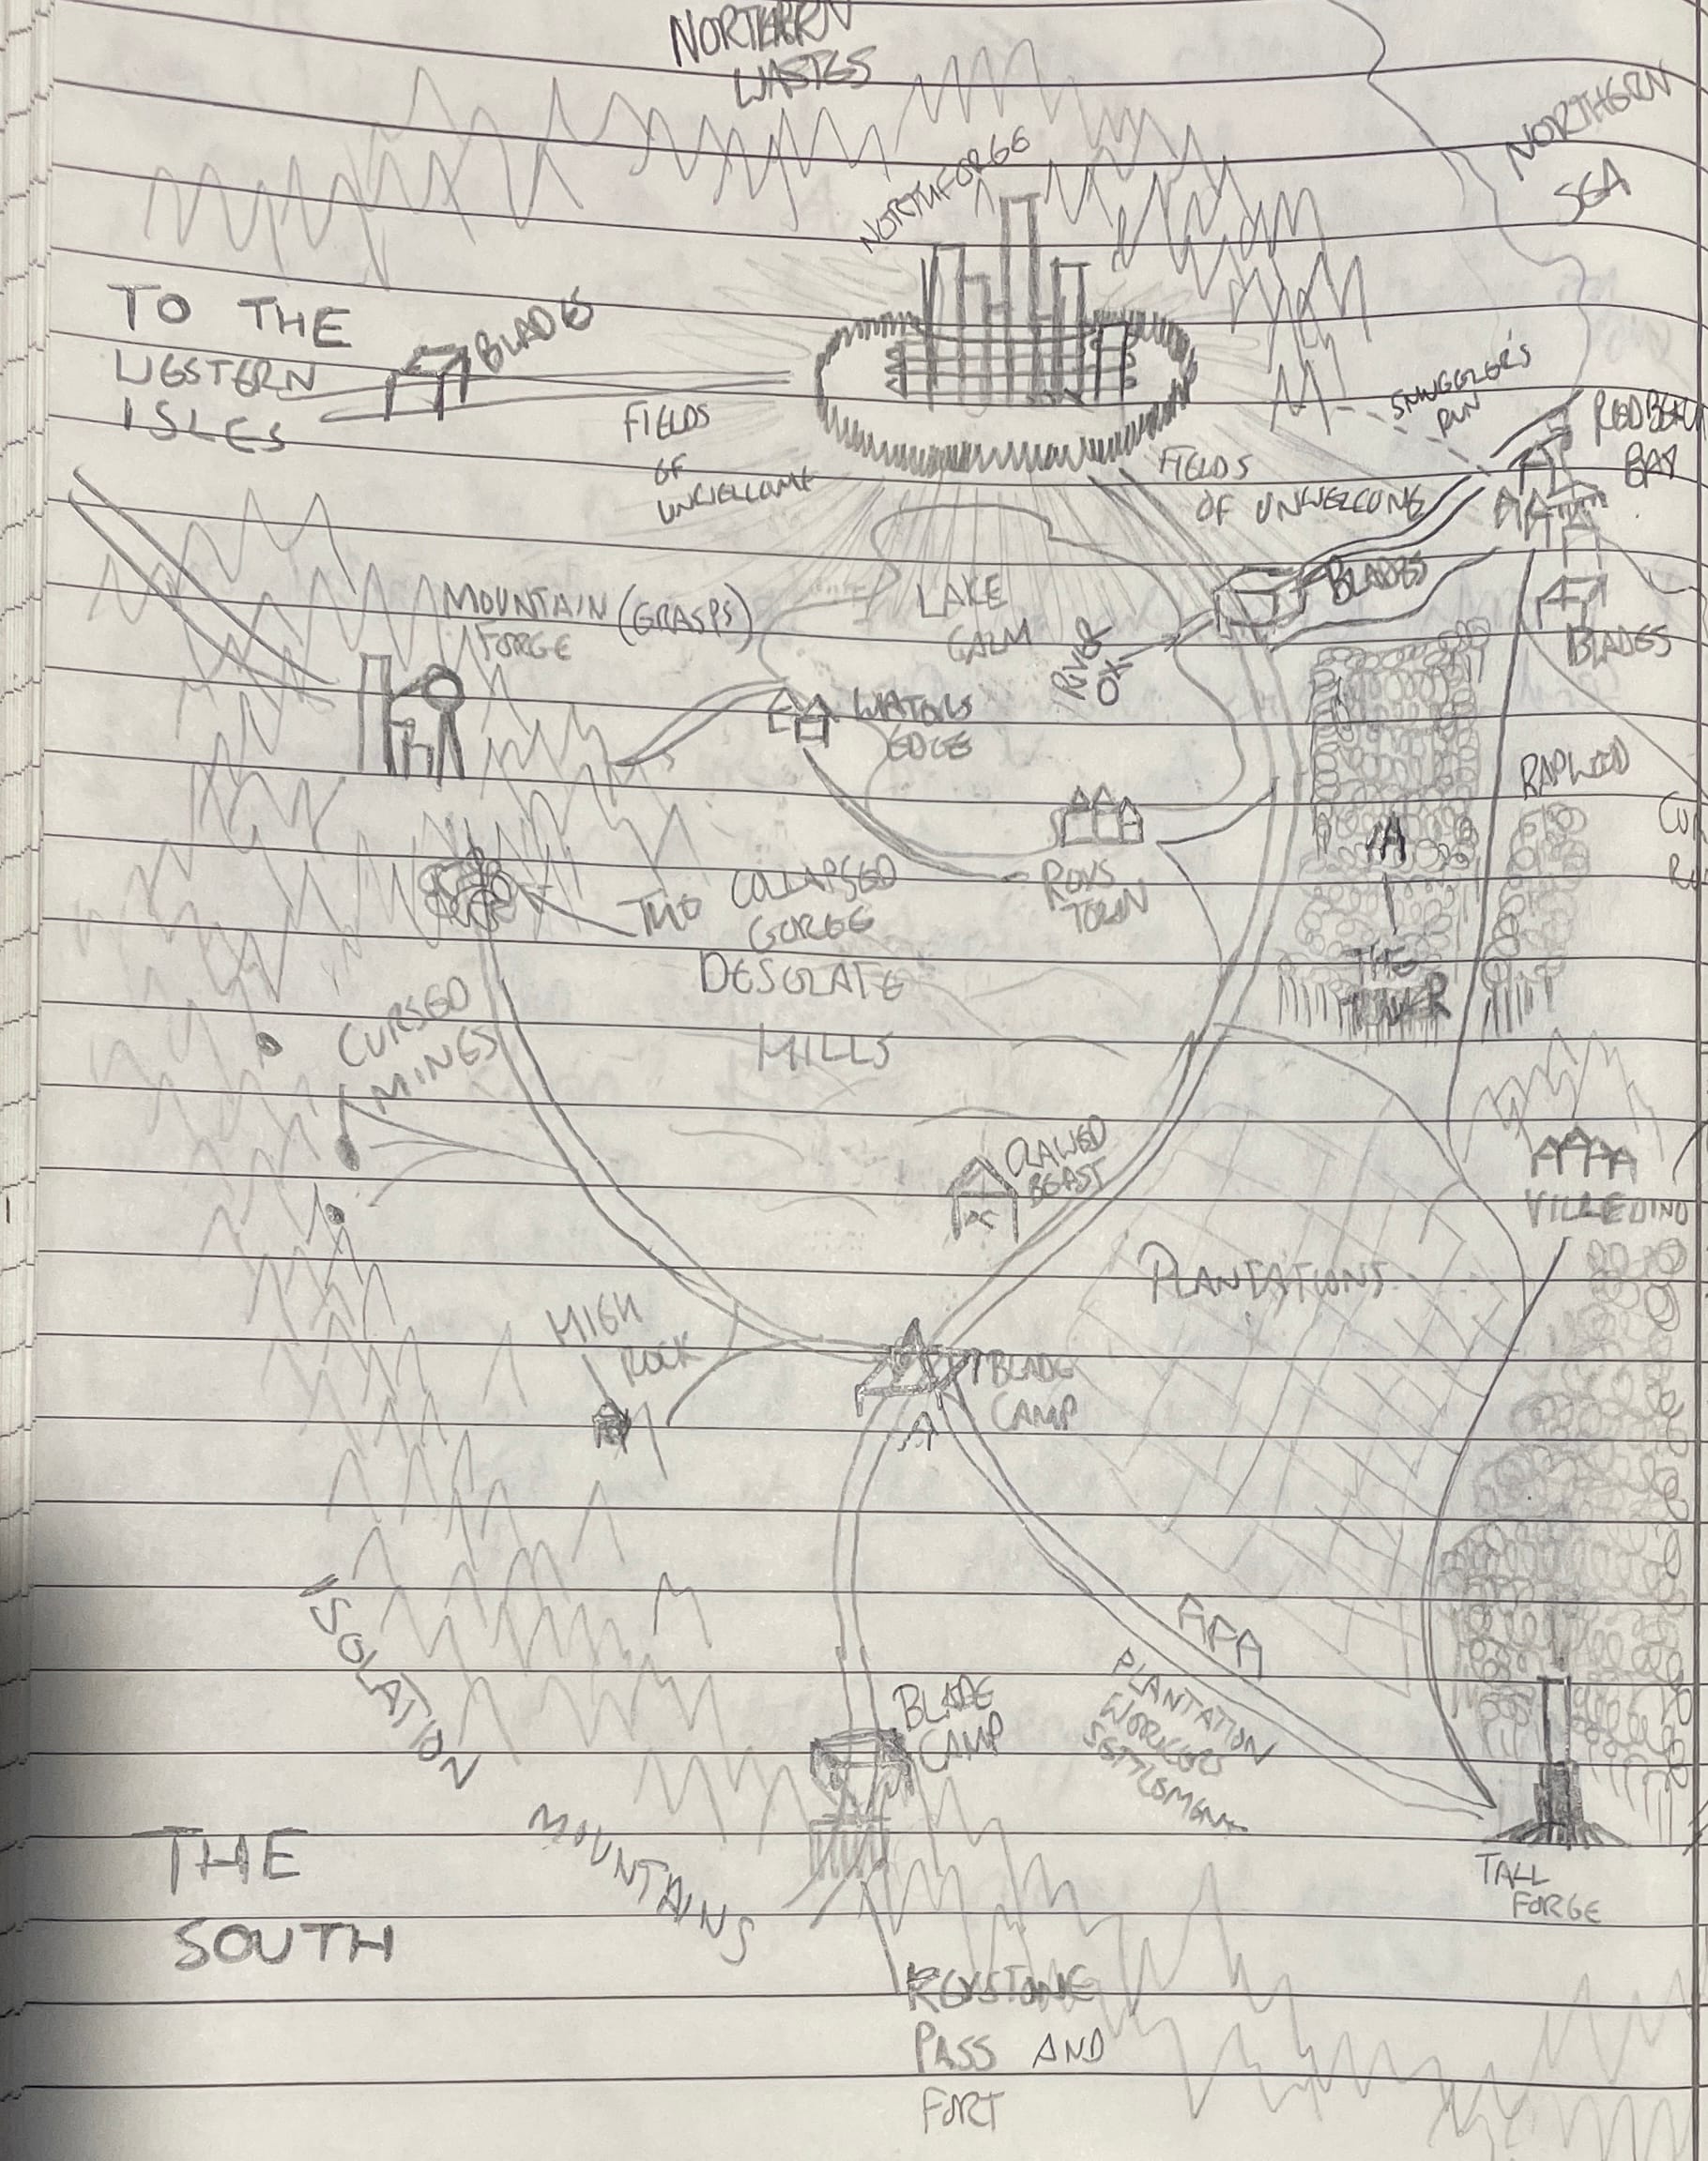 NORTHERN
WASTES
NORTHERN
SEA
NORTHFORGE
TO THE
WESTERN
ISLES
BLADES
SMUGGLER'S
RUN
BAY
FIELDS
OF
UNWELCOME
FIELDS
OF UNWELCOME
BLADES
BLADES
MOUNTAIN (GRASPS)
FORGE
LAKE
CALM
RIVER
OX
WATERS
EDGE
RAPWOOD
ROYS
TOWN
THE COLLAPSED
GORGE
THE
TOWER
DESOLATE
HILLS
CURSED
MINES
CLAWED
BEAST
VILLEDINO
PLANTATIONS
HIGH
ROCK
BLADE
CAMP
ISOLATION
MOUNTAINS
BLADE
CAMP
PLANTATION
WORKERS
SETTLEMENT
TALL
FORGE
THE
SOUTH
KEYSTONE
PASS AND
FORT